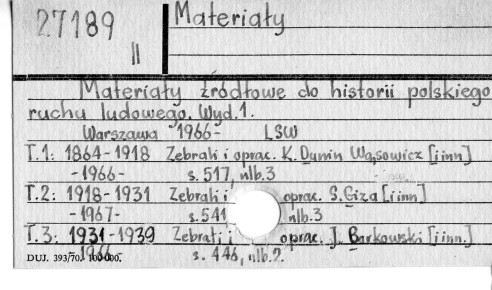 27189
II
Materiały
Materiały źródłowe do historii polskiego
ruchu ludowego. Wyd.1.
Warszawa 1966- LSW
T.1: 1864-1918 Zebrali i oprac. K. Dunin Wąsowicz [i inn]
-1966- s. 517, nlb.3
T.2: 1918-1931 Zebrali i oprac. S. Giza [i inn]
-1967- s.541 nlb.3
T.3: 1931-1939 Zebrali i oprac. J. Borkowski [i inn.]
s. 446, nlb.2.
DUJ. 393/70. 100 000.